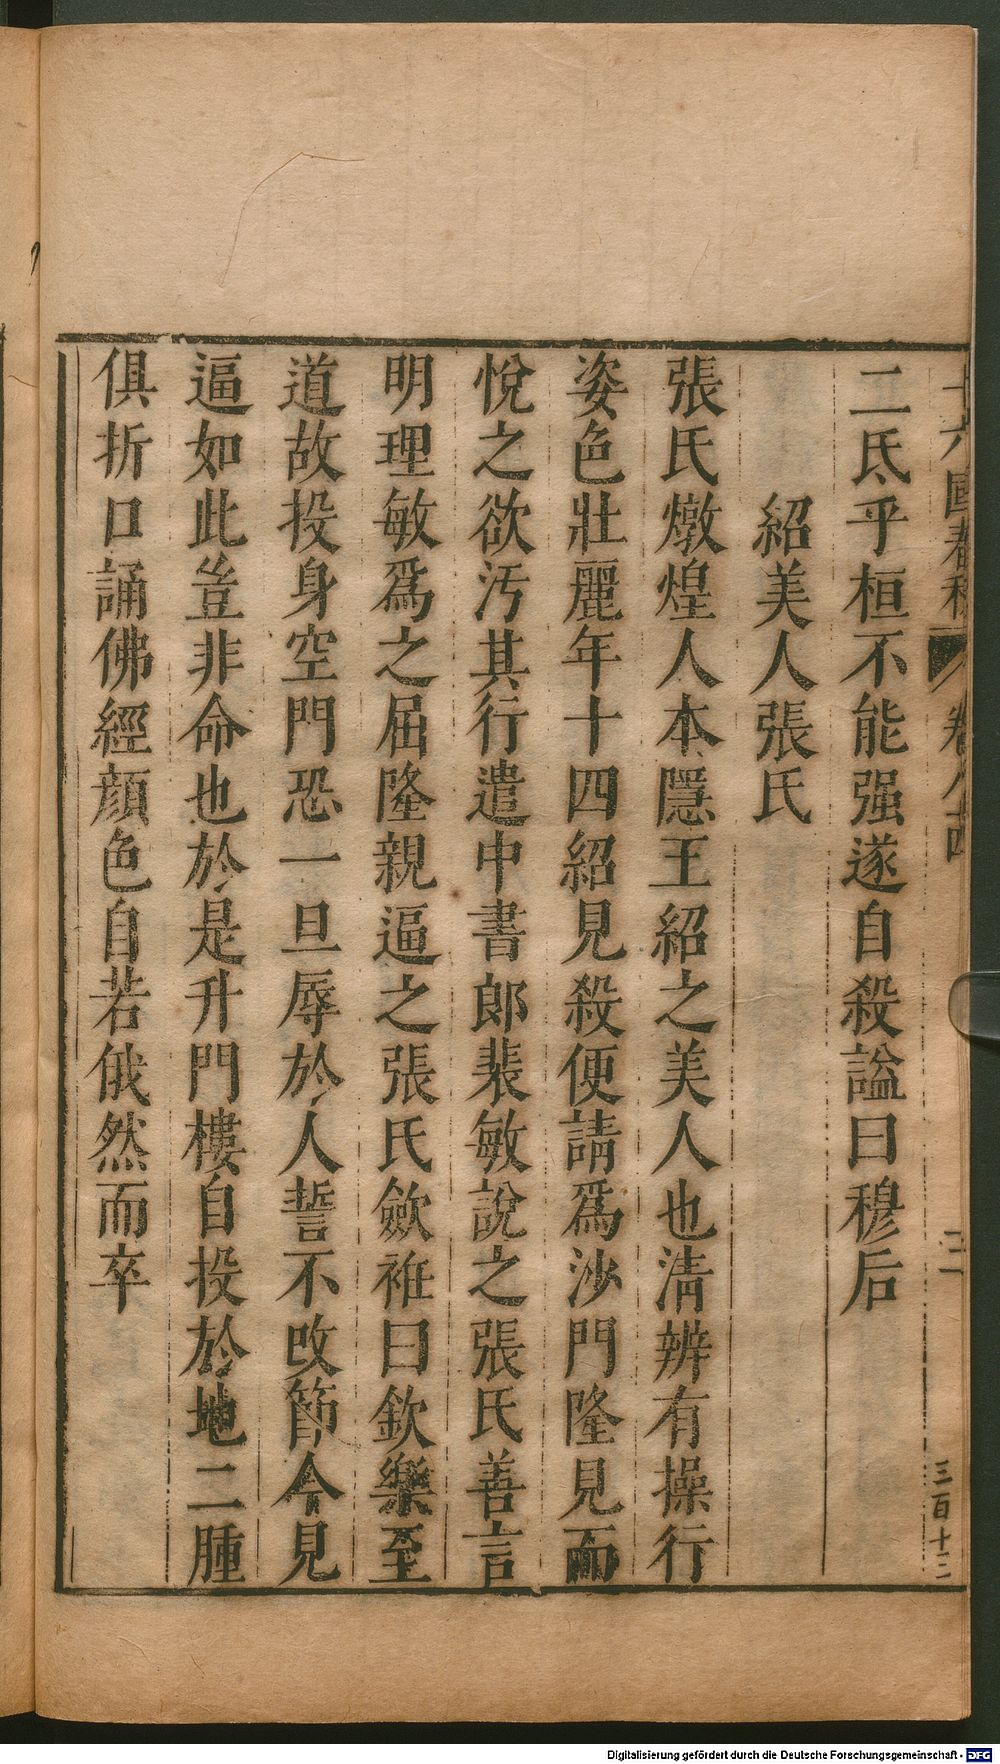 十六國春秋 卷八十四 二 三百十三
二氏乎桓不能强遂自殺謚曰穆后
紹美人張氏
張氏燉煌人本隱王紹之美人也清辨有操行
姿色壯麗年十四紹見殺便請爲沙門隆見而
悅之欲污其行遣中書郎裴敏說之張氏善言
明理敏爲之屈隆親逼之張氏歛袵曰欽樂至
道故投身空門恐一旦辱於人誓不改節今見
逼如此豈非命也於是升門樓自投於地二腫
俱折口誦佛經顏色自若俄然而卒
Digitalisierung gefördert durch die Deutsche Forschungsgemeinschaft - DFG